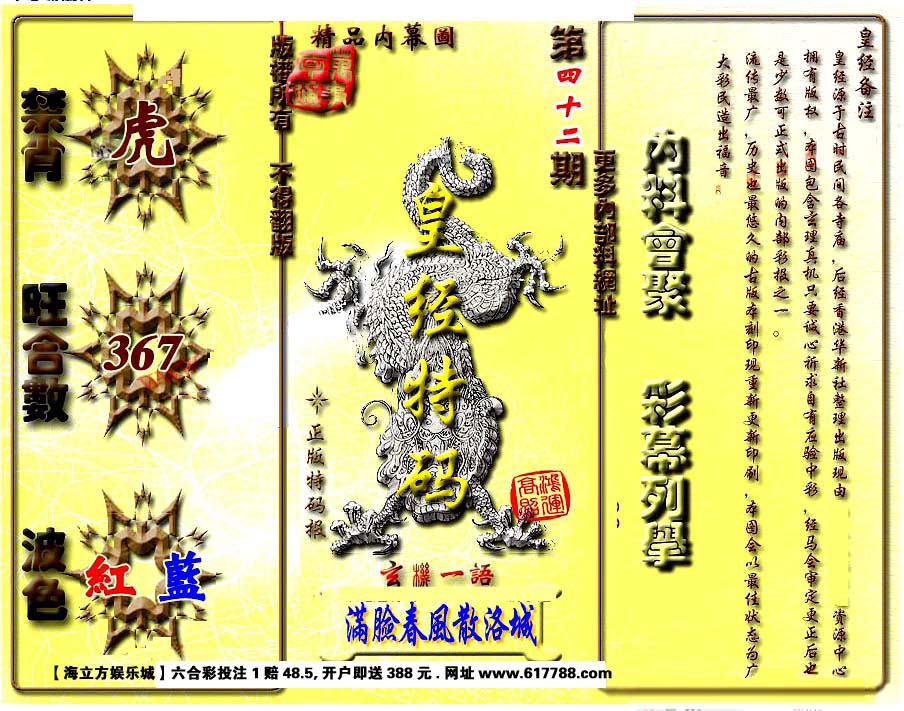 皇经备注
皇经源于古时民间各寺庙，后经香港华新社整理出版现由资源中心
拥有版权，本图包含玄理真机只要诚心祈求自有应验中彩，经马会审定更正后也
是少数可正式出版的内部彩报之一。
流传最广，历史也最悠久的古版本刻印现重新更新印刷，本图会以最佳状态为广
大彩民造出福音
内料會聚
彩幕列舉
更多内部料網址
第四十二期
精品内幕圖
版權所有 不得翻版
皇经特码
正版特码报
鴻運
高照
玄機一語
滿臉春風散洛城
禁肖
虎
旺合數
367
波色
紅 藍
【海立方娱乐城】六合彩投注 1 赔 48.5, 开户即送 388 元 . 网址 www.617788.com